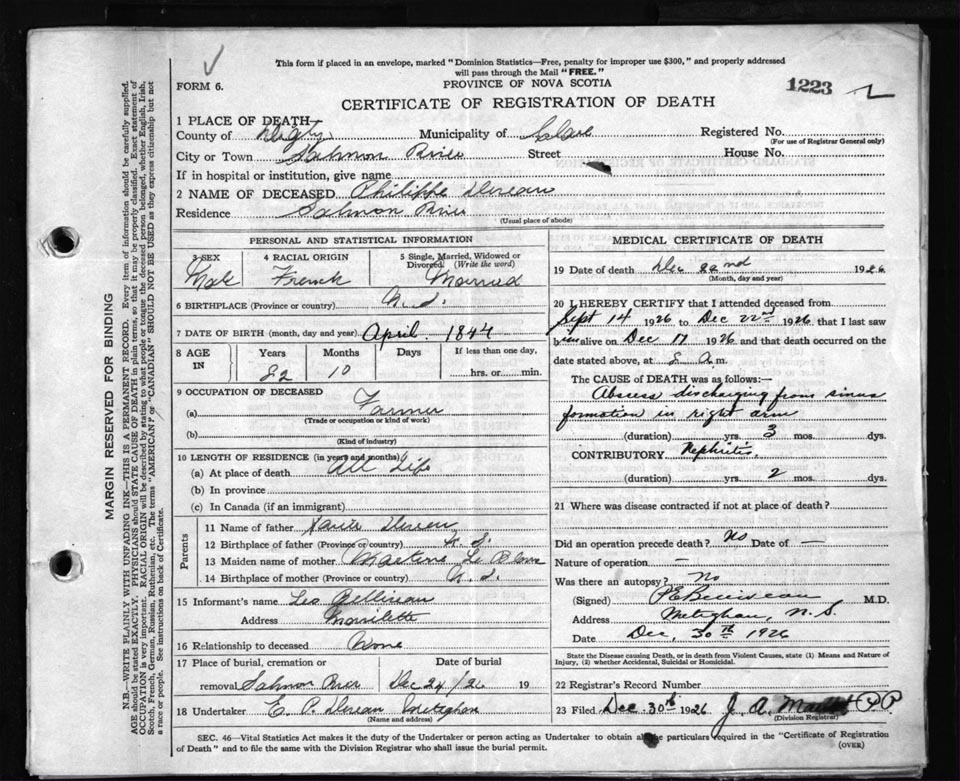 This form if placed in an envelope, marked "Dominion Statistics—Free, penalty for improper use $300," and properly addressed
will pass through the Mail "FREE."
FORM 6.
PROVINCE OF NOVA SCOTIA
1223
CERTIFICATE OF REGISTRATION OF DEATH
1 PLACE OF DEATH
County of Digby Municipality of Clare Registered No.
(For use of Registrar General only)
City or Town Salmon River Street House No.
If in hospital or institution, give name
2 NAME OF DECEASED Philippe
Residence Salmon River
(Usual place of abode)
PERSONAL AND STATISTICAL INFORMATION
3 SEX 4 RACIAL ORIGIN 5 Single, Married, Widowed or
Divorced (Write the word)
Male French Married
6 BIRTHPLACE (Province or country) N.S.
7 DATE OF BIRTH (month, day and year) April 1844
8 AGE IN Years Months Days If less than one day,
82 10 hrs. or min.
9 OCCUPATION OF DECEASED
(a) Farmer
(Trade or occupation or kind of work)
(b)
(Kind of industry)
10 LENGTH OF RESIDENCE (in years and months)
(a) At place of death All Life
(b) In province
(c) In Canada (if an immigrant)
Parents
11 Name of father
12 Birthplace of father (Province or country) N.S.
13 Maiden name of mother Le Blanc
14 Birthplace of mother (Province or country) N.S.
15 Informant's name Leo
Address
16 Relationship to deceased None
17 Place of burial, cremation or Date of burial
removal Salmon River Dec 24/26 19
18 Undertaker E. P. Meteghan
(Name and address)
MEDICAL CERTIFICATE OF DEATH
19 Date of death Dec 22nd 1926
(Month, day and year)
20 I HEREBY CERTIFY that I attended deceased from
Sept 14 1926 to Dec 22nd 1926 that I last saw
him alive on Dec 17 1926 and that death occurred on the
date stated above, at 8 A m.
The CAUSE of DEATH was as follows:—
Abscess discharging from sinus
formation in right arm
(duration) yrs. 3 mos. dys.
CONTRIBUTORY Nephritis
(duration) yrs. 2 mos. dys.
21 Where was disease contracted if not at place of death?
Did an operation precede death? No Date of —
Nature of operation —
Was there an autopsy? No
(Signed) M.D.
Address Meteghan, N.S.
Date Dec, 30th 1926
State the Disease causing Death, or in death from Violent Causes, state (1) Means and Nature of
Injury, (2) whether Accidental, Suicidal or Homicidal.
22 Registrar's Record Number
23 Filed Dec 30th 1926 J. A. PP
(Division Registrar)
SEC. 46—Vital Statistics Act makes it the duty of the Undertaker or person acting as Undertaker to obtain all the particulars required in the "Certificate of Registration
of Death" and to file the same with the Division Registrar who shall issue the burial permit.
(OVER)
MARGIN RESERVED FOR BINDING
N.B.—WRITE PLAINLY WITH UNFADING INK—THIS IS A PERMANENT RECORD. Every item of information should be carefully supplied.
AGE should be stated EXACTLY. PHYSICIANS should STATE CAUSE OF DEATH in plain terms, so that it may be properly classified. Exact statement of
OCCUPATION is very important. RACIAL ORIGIN will be described by stating to what people or tongue the deceased person belonged, whether English, Irish,
Scotch, French, German, Russian, Ruthenian, etc. The terms "AMERICAN" or "CANADIAN" SHOULD NOT BE USED as they express citizenship but not
a race or people. See instructions on back of Certificate.